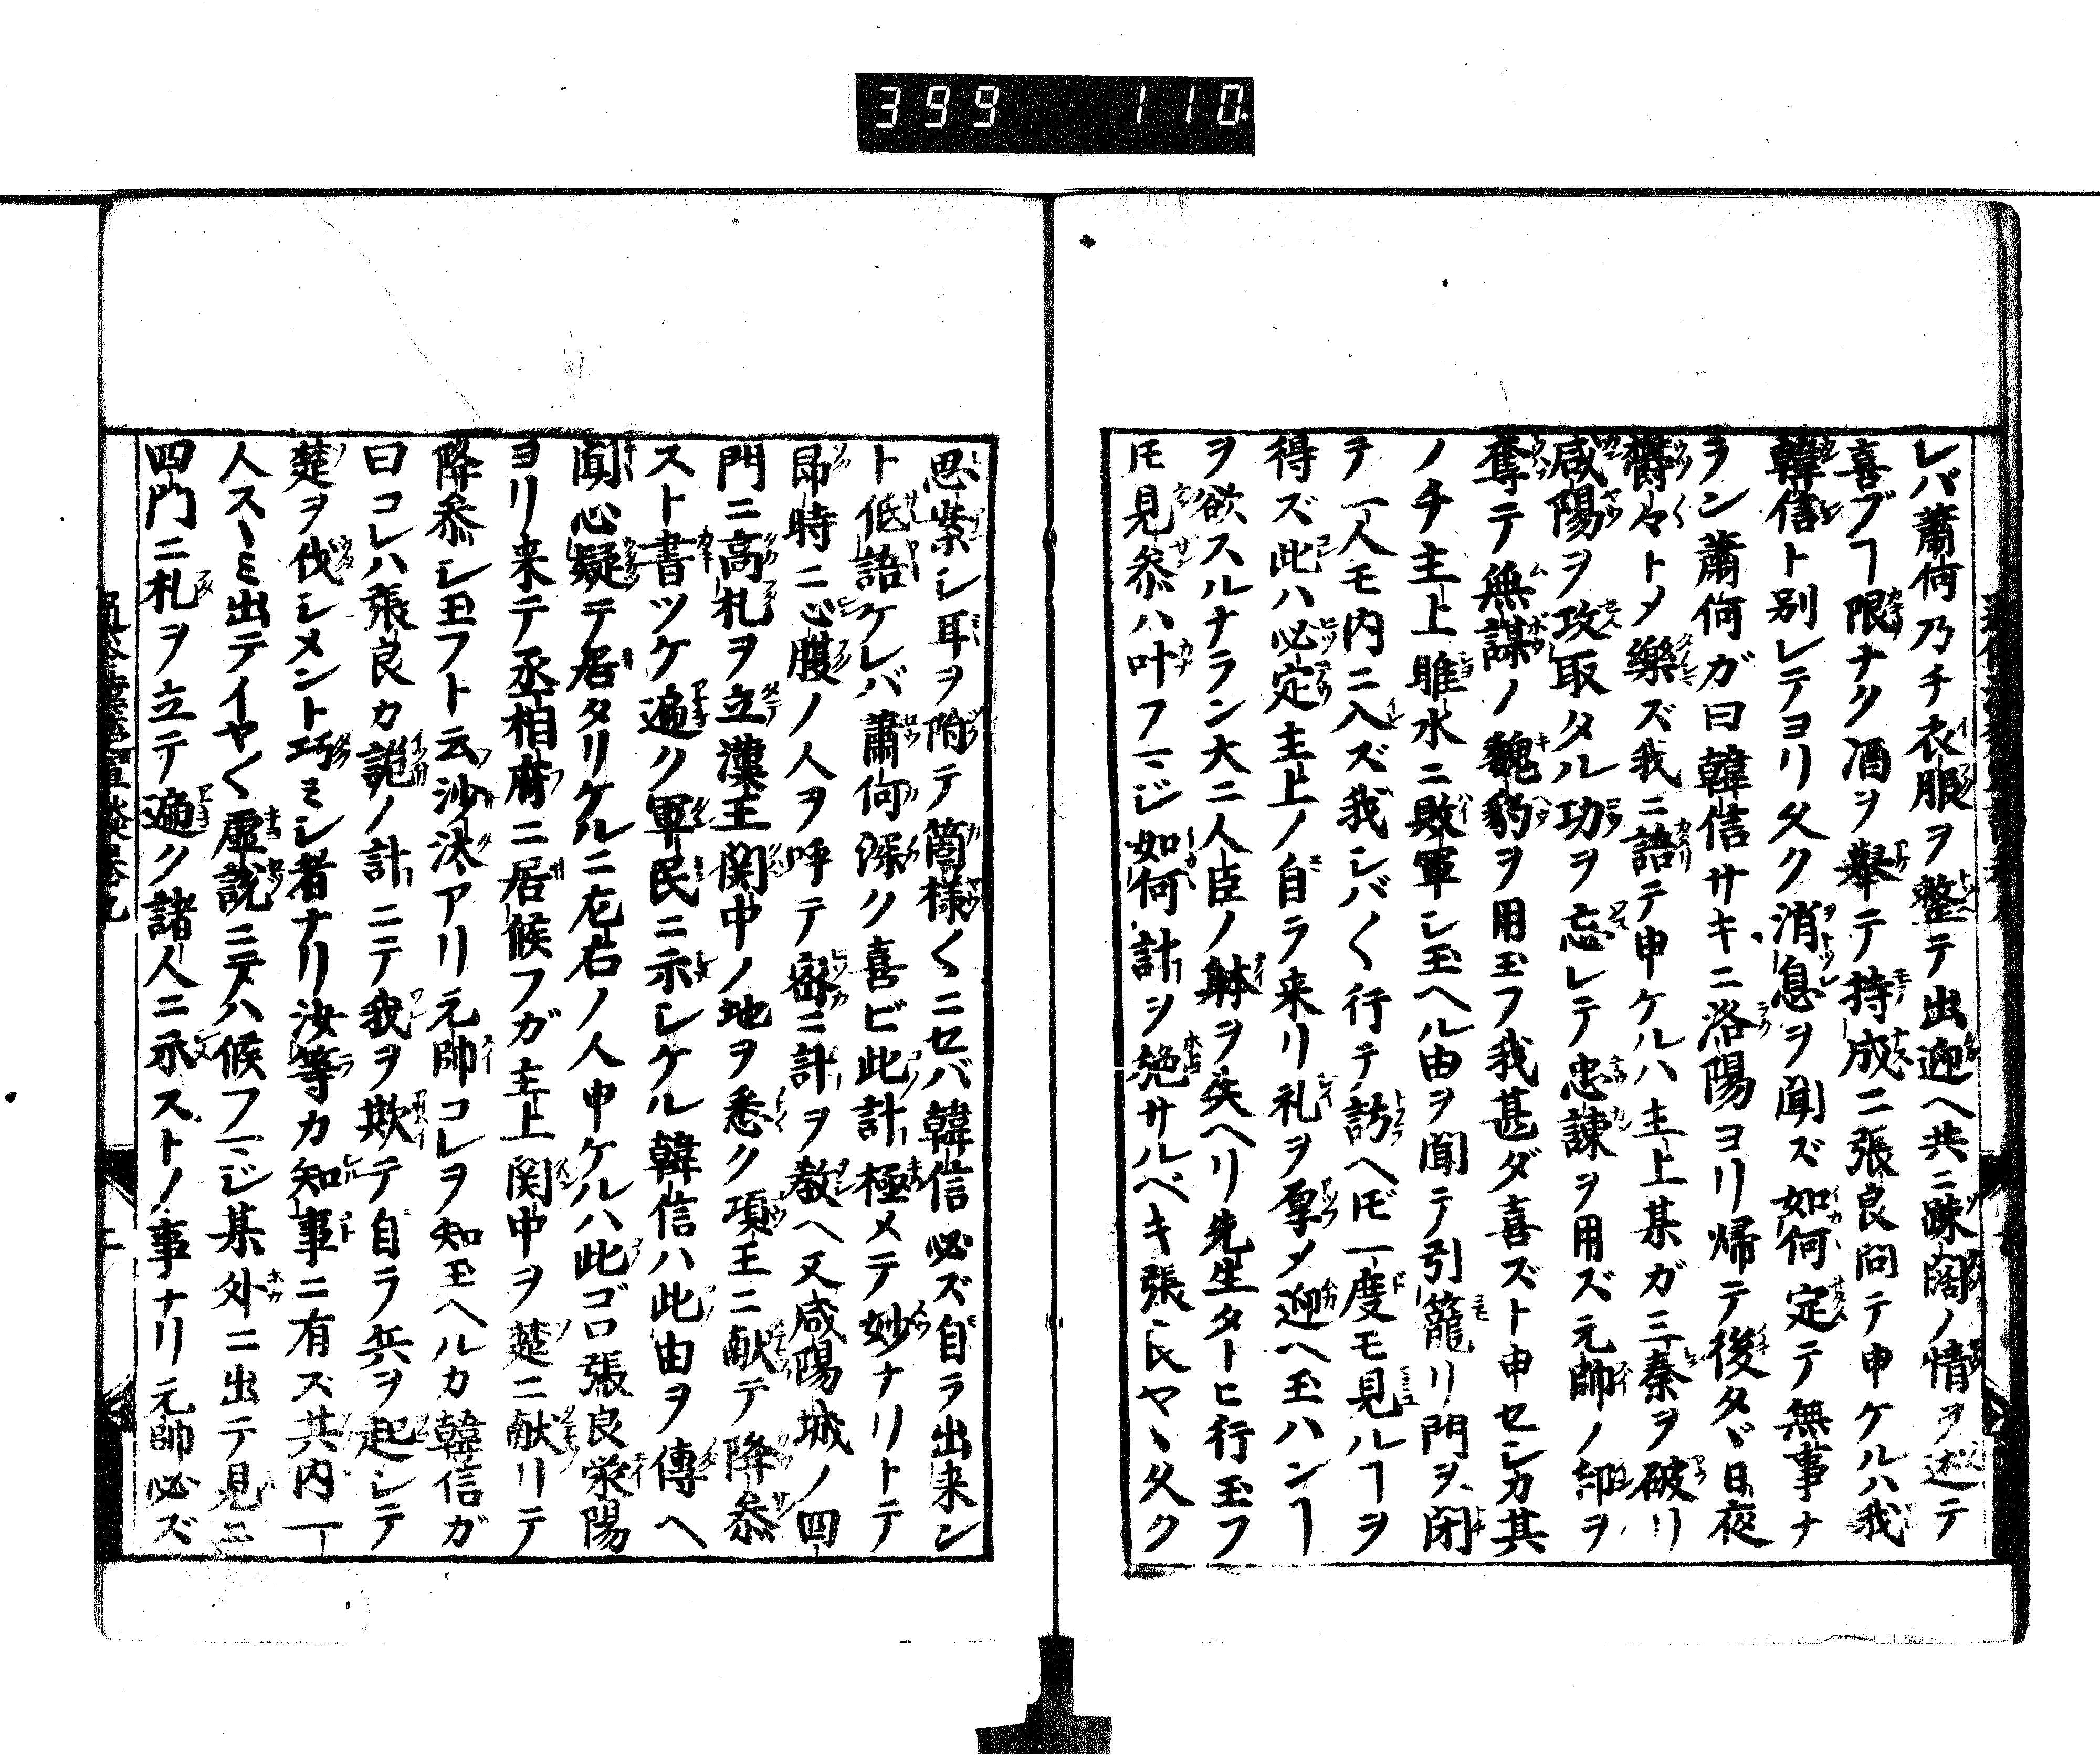 399 110
レバ蕭何乃チ衣服ヲ整テ出迎ヘ共ニ踈闊ノ情ヲ述テ
喜ブヿ限ナク酒ヲ舉テ持成ニ張良問テ申ケルハ我
韓信ト別レテヨリ久ク消息ヲ聞ズ如何定テ無事ナ
ラン蕭何ガ曰韓信サキニ洛陽ヨリ帰テ後タヾ日夜
欝々トメ樂ズ我ニ語テ申ケルハ主上某ガ三秦ヲ破リ
咸陽ヲ攻取タル功ヲ忘レテ忠諫ヲ用ズ元帥ノ印ヲ
奪テ無謀ノ魏豹ヲ用玉フ我甚ダ喜ズト申セシカ其
ノチ主上睢水ニ敗軍シ玉ヘル由ヲ聞テ引籠リ門ヲ閉
テ一人モ内ニ入ズ我シバ〱行テ訪ヘ𪜈一度モ見ルヿヲ
得ズ此ハ必定主上ノ自ラ来リ礼ヲ厚メ迎ヘ玉ハンヿ
ヲ欲スルナラン大ニ人臣ノ躰ヲ失ヘリ先生タトヒ行玉フ
𪜈見参ハ叶フマジ如何計ヲ絶サルベキ張良ヤヽ久ク
思案シ耳ヲ附テ箇様〱ニセバ韓信必ズ自ラ出来ン
ト低語ケレバ蕭何深ク喜ビ此計極メテ妙ナリトテ
昂時ニ心腹ノ人ヲ呼テ密ニ計ヲ教ヘ又咸陽城ノ四
門ニ高札ヲ立漢王関中ノ地ヲ悉ク項王ニ献テ降参
スト書ツケ遍ク軍民ニ示シケル韓信ハ此由ヲ傳ヘ
聞心疑テ居タリケルニ左右ノ人申ケルハ此ゴロ張良栄陽
ヨリ来テ丞相府ニ居候フガ主上関中ヲ楚ニ献リテ
降参シ玉フト云沙汰アリ元帥コレヲ知玉ヘルカ韓信ガ
曰コレハ張良カ詭ノ計ニテ我ヲ欺テ自ラ兵ヲ起シテ
楚ヲ伐シメント巧ミシ者ナリ汝等カ知事ニ有ス共内一
人スヽミ出テイヤ〱虚説ニテハ候フマジ某外ニ出テ見ニ
四門ニ札ヲ立テ遍ク諸人ニ示ストノ事ナリ元帥必ズ